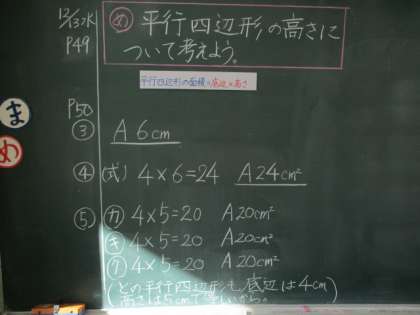 12/13水
P49
め 平行四辺形の高さに
ついて考えよう。
平行四辺形の面積=底辺×高さ
P50
③ A 6cm
④ (式) 4×6=24 A 24cm²
⑤ カ 4×5=20 A 20cm²
キ 4×5=20 A 20cm²
ク 4×5=20 A 20cm²
(どの平行四辺形も底辺は4cm
高さは5cmで等しいから。)
ま
め